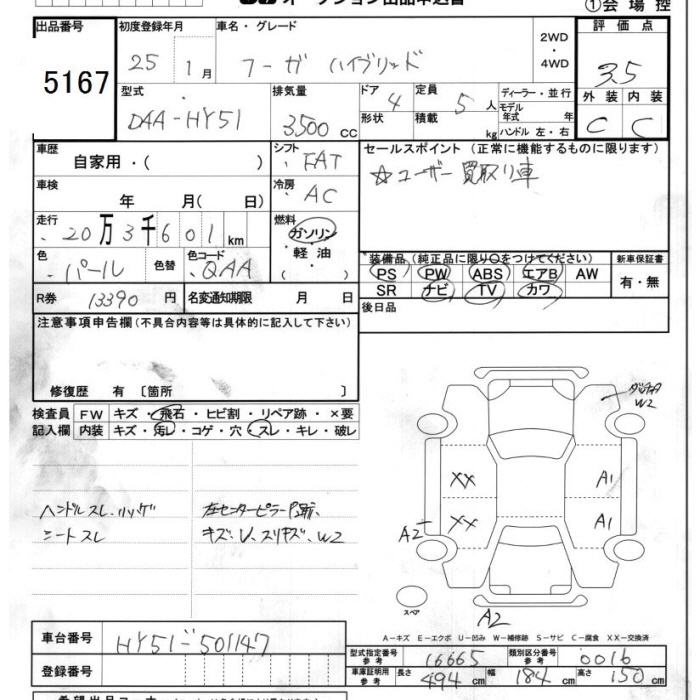 オークション出品申込書
①会場控
出品番号 5167
初度登録年月 25 1月
車名・グレード フーガ ハイブリッド
2WD・4WD
評価点 3.5
型式 DAA-HY51
排気量 3500cc
ドア 4 形状
定員 5人 積載 kg
ディーラー・並行
モデル年式 年
ハンドル 左・右
外装 内装
C C
車歴 自家用・( )
シフト FAT
セールスポイント (正常に機能するものに限ります)
☆ユーザー買取り車
車検 年 月( 日)
冷房 AC
走行 20万3千601km
燃料 ガソリン・軽油・( )
色 パール 色替 色コード QAA
装備品 (純正品に限り○をつけてください) 新車保証書
PS PW ABS エアB AW 有・無
SR ナビ TV カワ
R券 13390円 名変通知期限 月 日
後日品
注意事項申告欄(不具合内容等は具体的に記入して下さい)
修復歴 有〔箇所 〕
検査員 FW キズ・飛石・ヒビ割・リペア跡・×要
記入欄 内装 キズ・汚レ・コゲ・穴・スレ・キレ・破レ
ハンドルスレ.
シートスレ
キズ、U、スリキズ、W2
W2
XX A1
XX A1
A2
スペア
A2
A-キズ E-エクボ U-凹み W-補修跡 S-サビ C-腐食 XX-交換済
車台番号 HY51-501147
型式指定番号 参考 16665 類別区分番号 参考 0016
登録番号
車庫証明用 参考 長さ 494cm 幅 184cm 高さ 150cm
希望出品コーナー